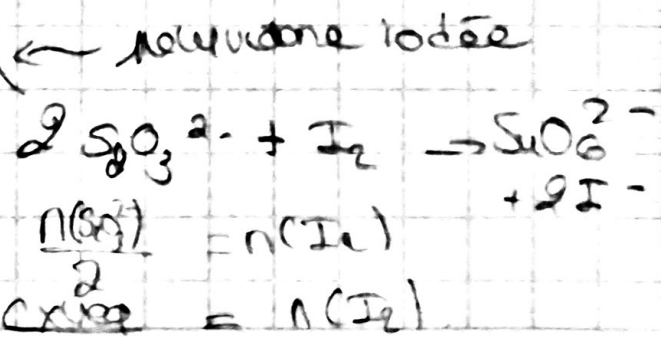 ← iodée
2 S₂O₃²⁻ + I₂ → S₄O₆²⁻
+ 2I⁻
n(S₂O₃²⁻)/2 = n(I₂)
= n(I₂)